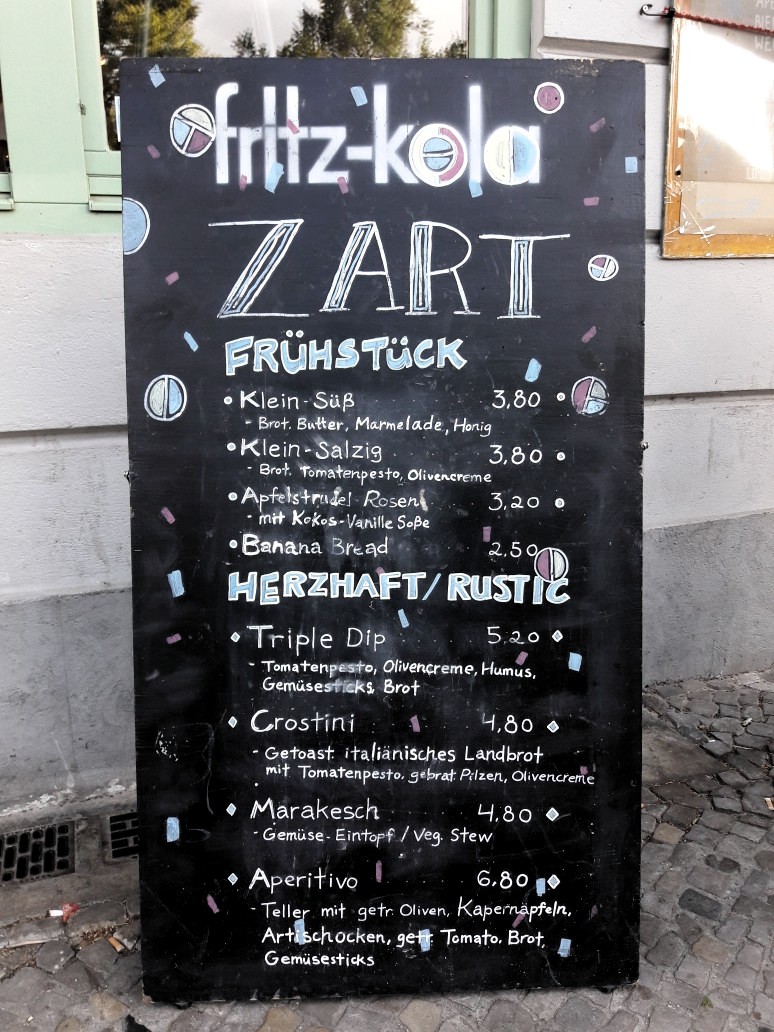 fritz-kola
ZART
FRÜHSTÜCK
• Klein-Süß 3,80 •
- Brot. Butter, Marmelade, Honig
• Klein-Salzig 3,80 •
- Brot. Tomatenpesto, Olivencreme
• Apfelstrudel Rosen 3,20 •
- mit Kokos-Vanille Soße
• Banana Bread 2,50
HERZHAFT/RUSTIC
Triple Dip 5,20
- Tomatenpesto, Olivencreme, Humus,
Gemüsesticks, Brot
Crostini 4,80
- Getoast. italiänisches Landbrot
mit Tomatenpesto. gebrat. Pilzen, Olivencreme
Marakesch 4,80
- Gemüse-Eintopf / Veg. Stew
Aperitivo 6,80
- Teller mit getr. Oliven, Kapernäpfeln,
Artischocken, getr. Tomato. Brot,
Gemüsesticks